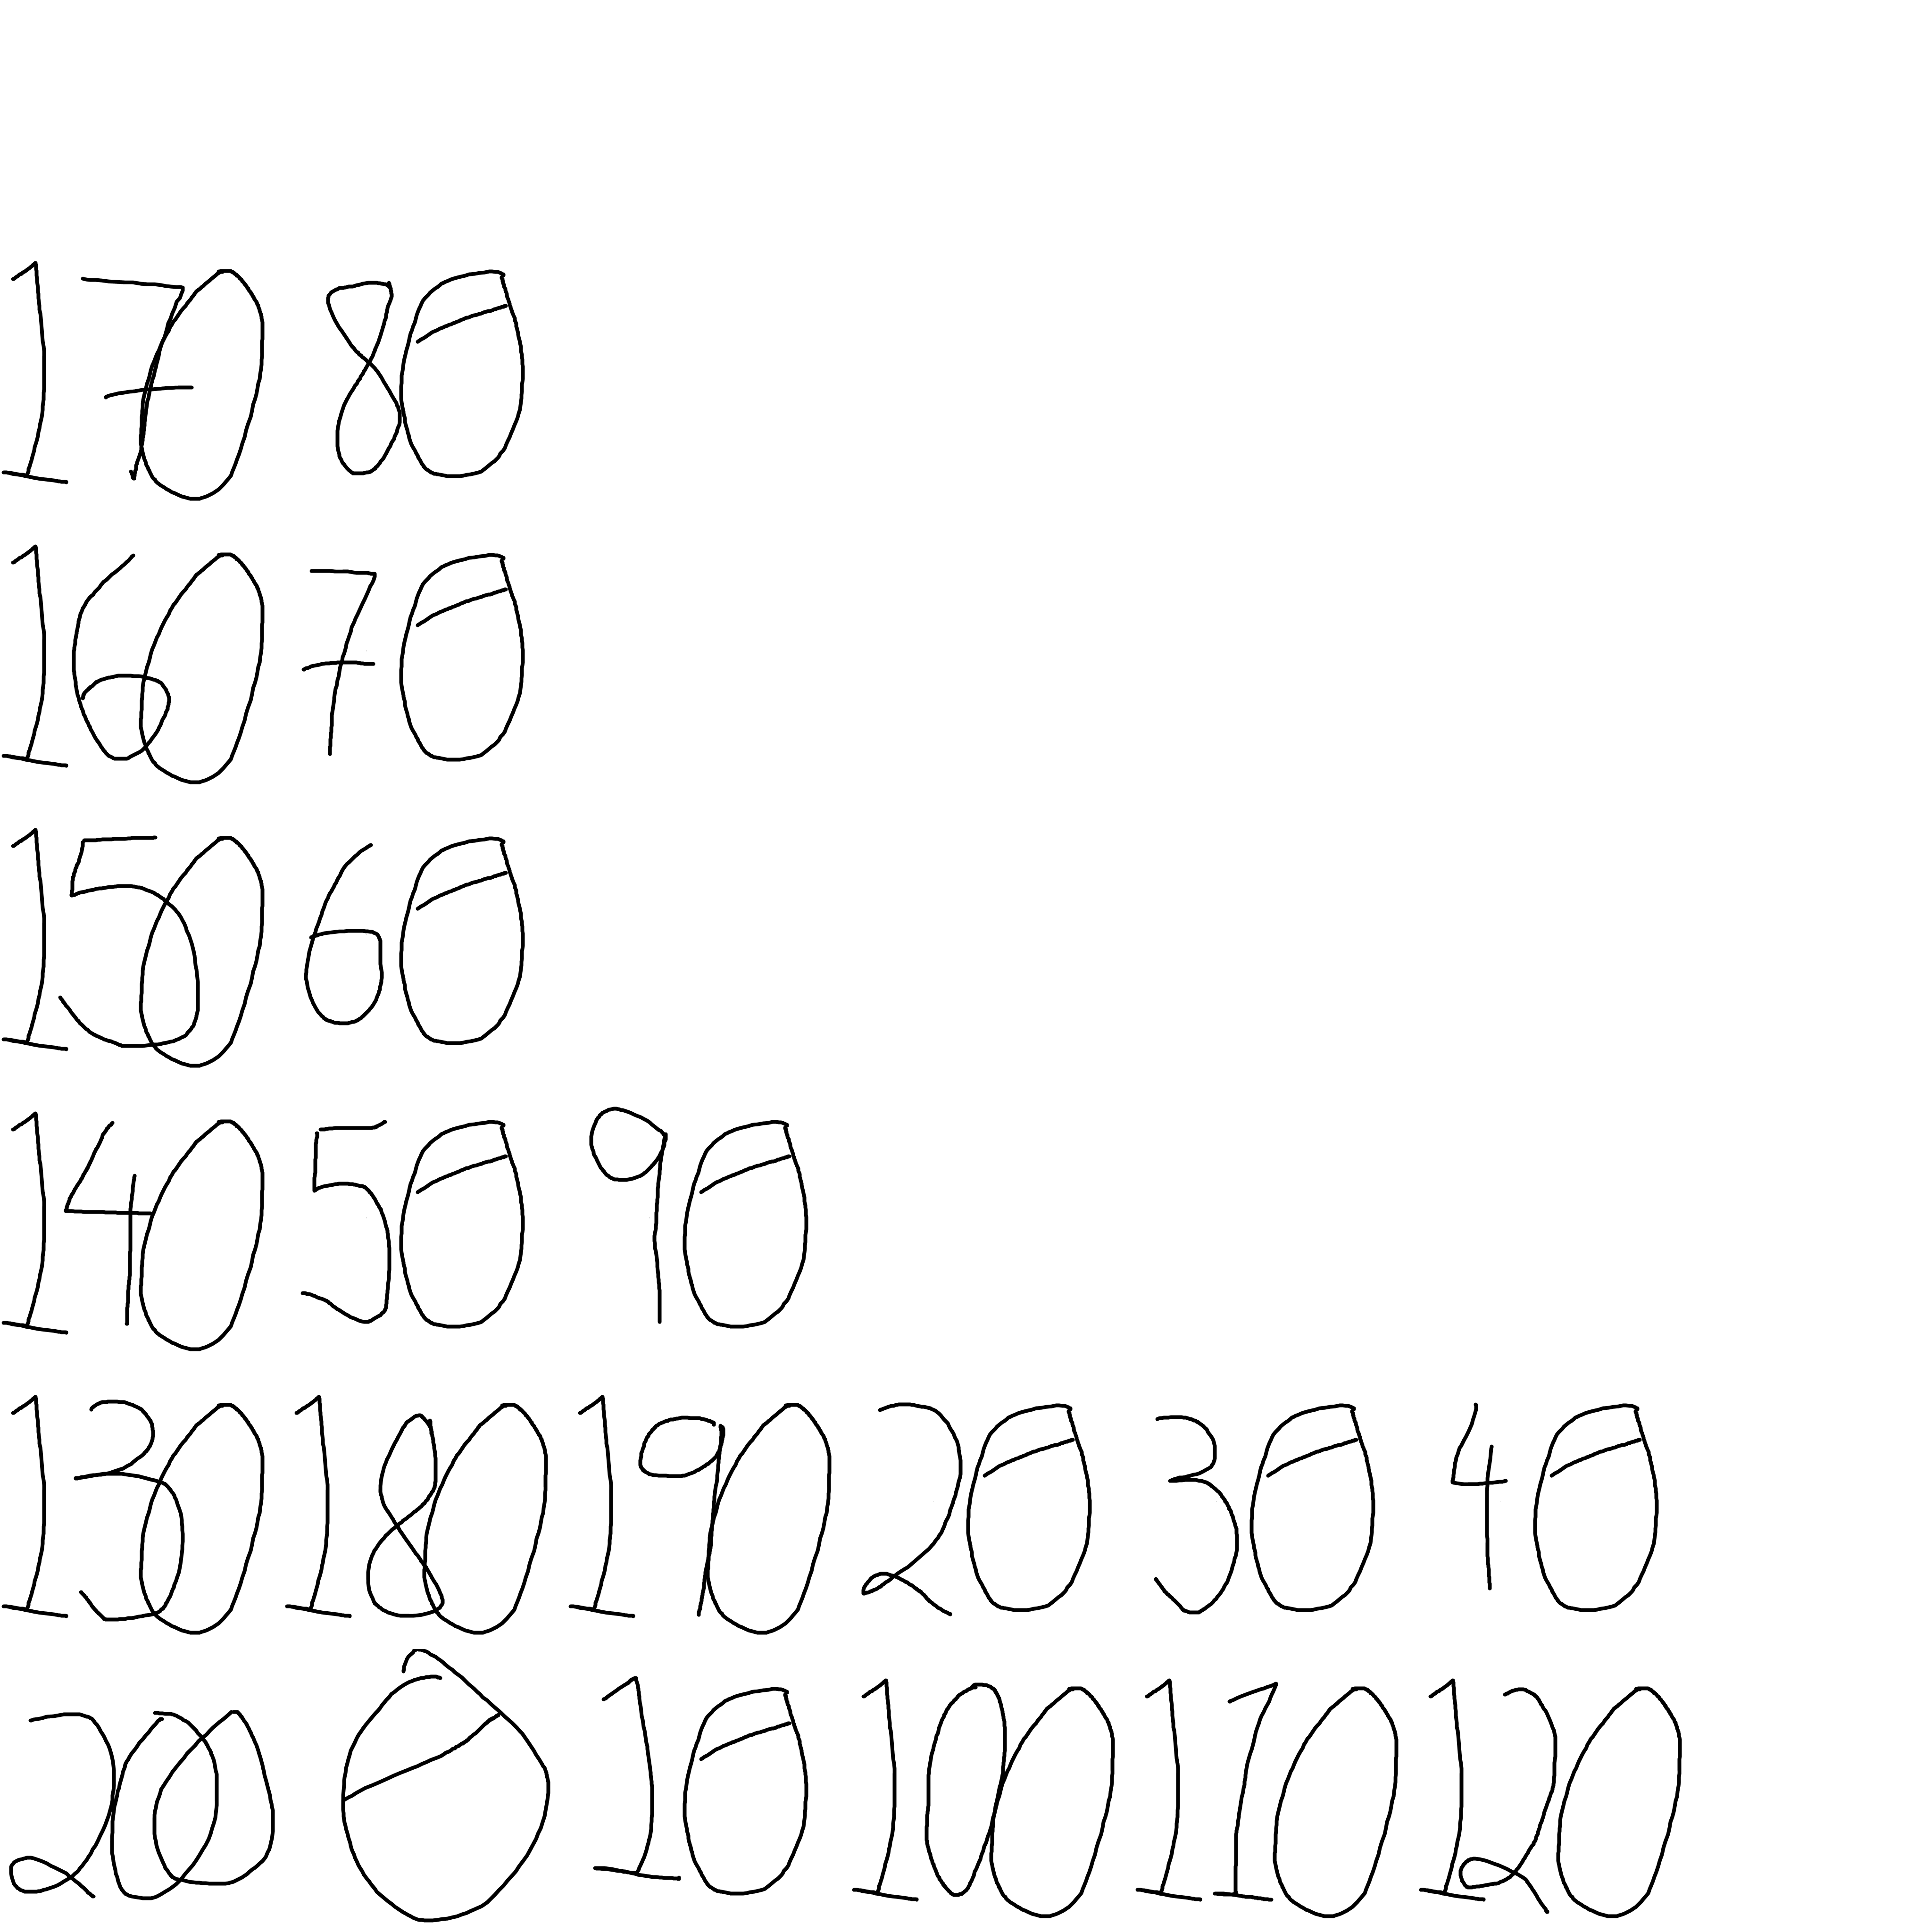 170 80
160 70
150 60
140 50 90
130 180 190 20 30 40
200 0 10 100 110 120